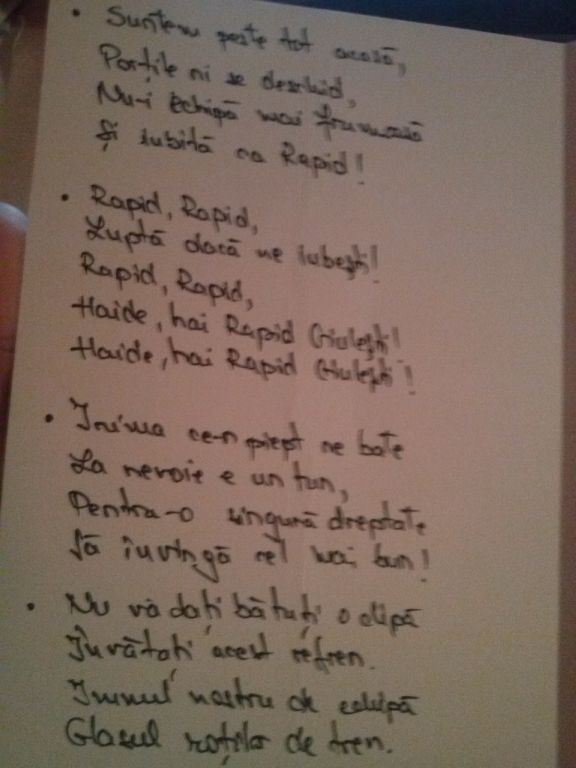 • Suntem peste tot acasă,
Porțile ni se deschid,
Nu-i Echipă mai frumoasă
Și iubită ca Rapid!
• Rapid, Rapid,
Luptă dacă ne iubești!
Rapid, Rapid,
Haide, hai Rapid Giulești!
Haide, hai Rapid Giulești!
• Inima ce-n piept ne bate
La nevoie e un tun,
Pentru-o singură dreptate
Să învingă cel mai bun!
• Nu vă dați bătuți o clipă
Învătați acest refren.
Imnul nostru de echipă
Glasul roților de tren.